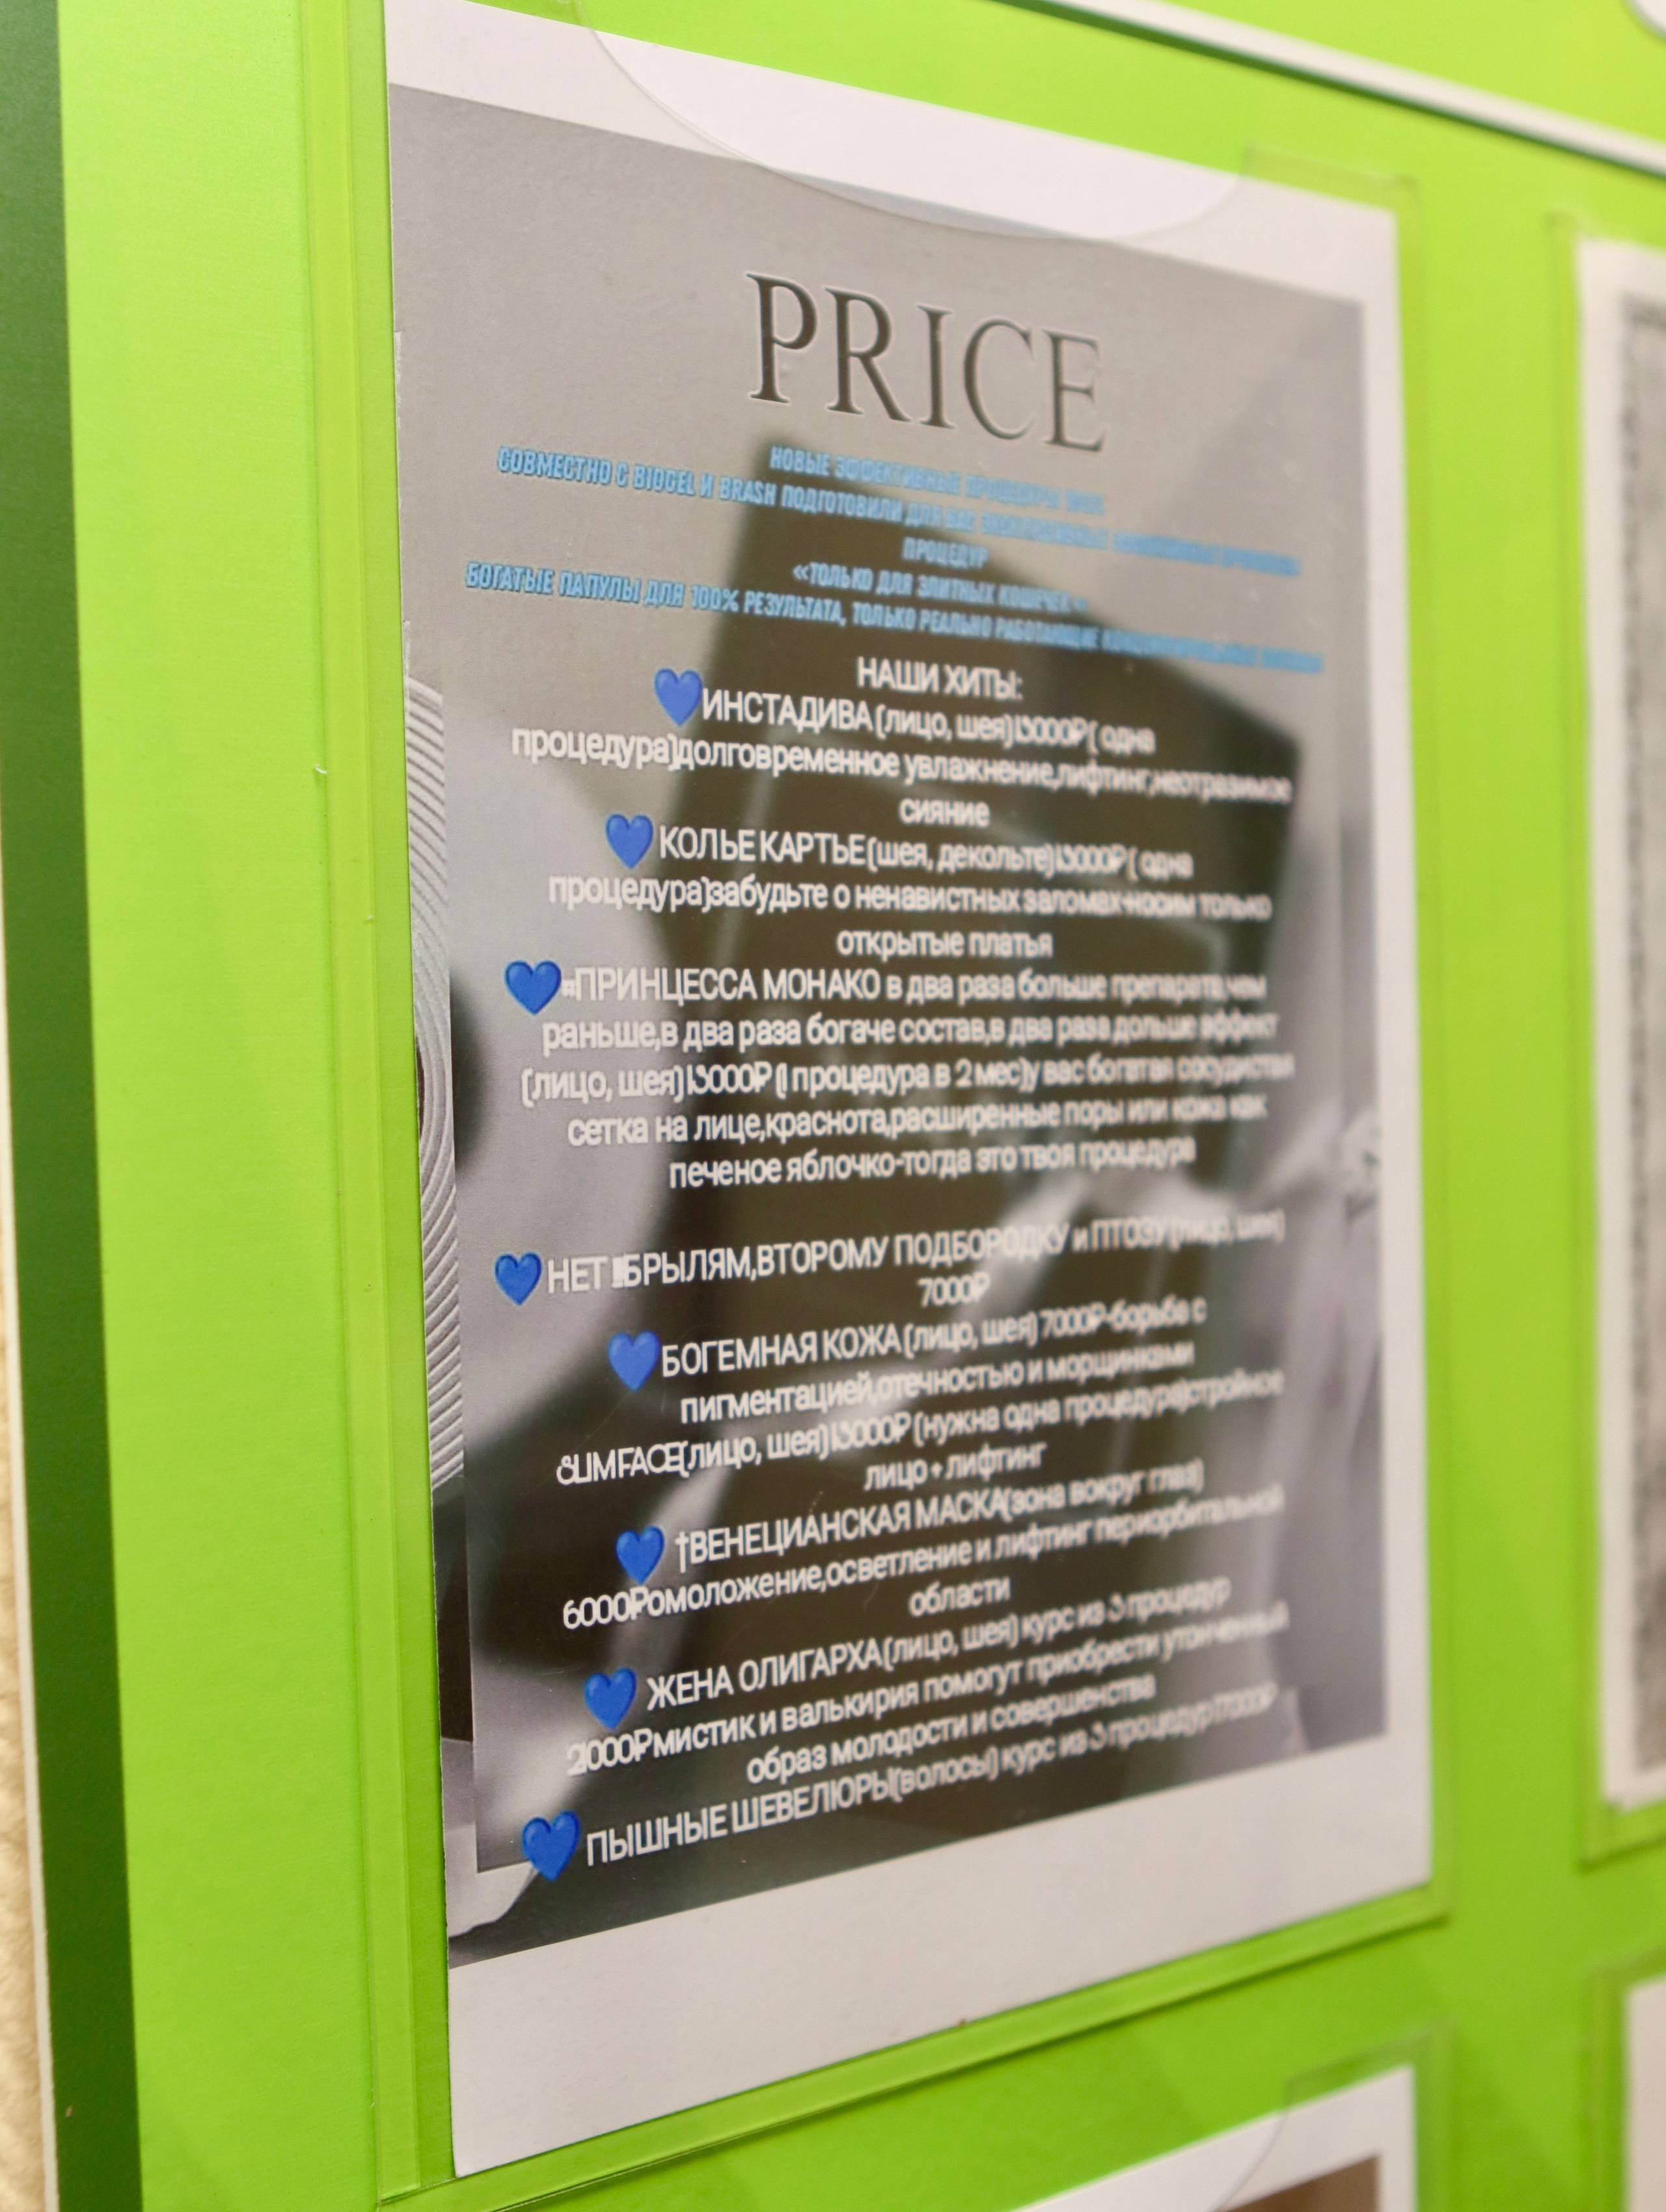 PRICE
НОВЫЕ ЭФФЕКТИВНЫЕ ПРОЦЕДУРЫ
СОВМЕСТНО С BIOGEL И BRASH ПОДГОТОВИЛИ ДЛЯ ВАС
ПРОЦЕДУР
«ТОЛЬКО ДЛЯ ЭЛИТНЫХ КОШЕЧЕК»
БОГАТЫЕ ПАПУЛЫ ДЛЯ 100% РЕЗУЛЬТАТА, ТОЛЬКО РЕАЛЬНО РАБОТАЮЩИЕ
НАШИ ХИТЫ:
💙ИНСТАДИВА(лицо, шея)13000₽( одна
процедура)долговременное увлажнение,лифтинг,неотразимое
сияние
💙КОЛЬЕ КАРТЬЕ(шея, декольте)13000₽( одна
процедура)забудьте о ненавистных заломах-носим только
открытые платья
💙«ПРИНЦЕССА МОНАКО в два раза больше препарата,чем
раньше,в два раза богаче состав,в два раза дольше эффект
(лицо, шея)13000₽ (1 процедура в 2 мес)у вас богатая сосудистая
сетка на лице,краснота,расширенные поры или кожа как
печеное яблочко-тогда это твоя процедура
💙НЕТ‼БРЫЛЯМ,ВТОРОМУ ПОДБОРОДКУ и ПТОЗУ(лицо, шея)
7000₽
💙БОГЕМНАЯ КОЖА(лицо, шея) 7000₽-борьба с
пигментацией,отечностью и морщинками
SLIMFACE(лицо, шея)13000₽ (нужна одна процедура)стройное
лицо + лифтинг
💙 †ВЕНЕЦИАНСКАЯ МАСКА(зона вокруг глаз)
6000₽омоложение,осветление и лифтинг периорбитальной
области
💙 ЖЕНА ОЛИГАРХА(лицо, шея) курс из 3 процедур
21000₽мистик и валькирия помогут приобрести утонченный
образ молодости и совершенства
💙 ПЫШНЫЕ ШЕВЕЛЮРЫ(волосы) курс из 3 процедур17000₽